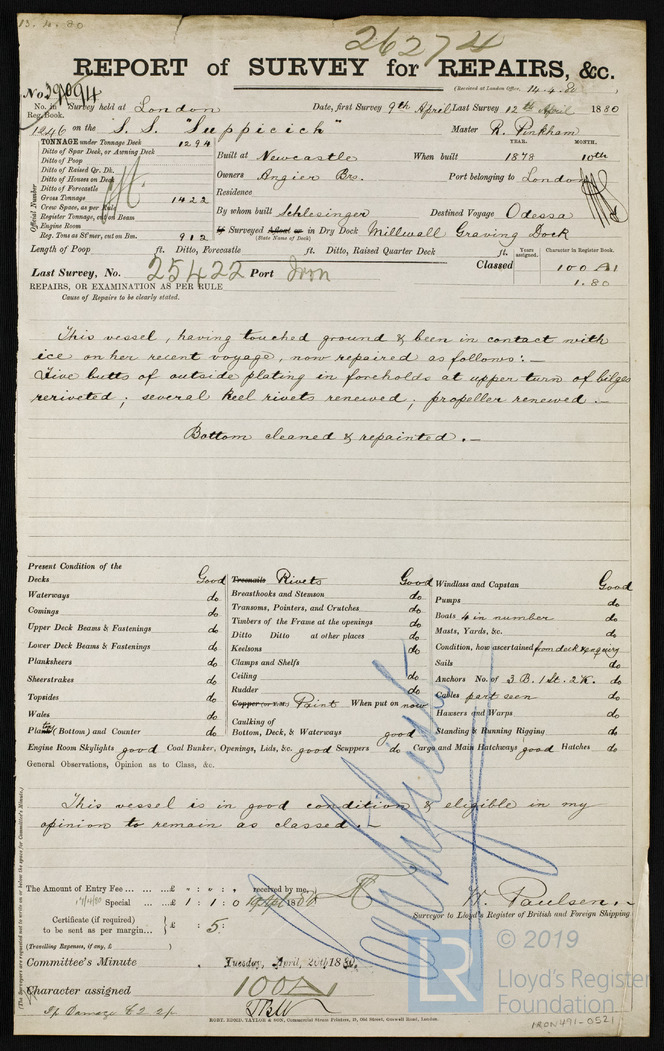 13.4.80
26274
REPORT of SURVEY for REPAIRS, &c.
(Received at London Office, 14.4.80 )
No. in Reg. Book. Survey held at London Date, first Survey 9th April Last Survey 12th April 1880
1246 on the S.S. "Suppicich" Master R. Pinkham
TONNAGE under Tonnage Deck 1294
YEAR. MONTH.
Ditto of Spar Deck, or Awning Deck
Built at Newcastle When built 1878 10th
Ditto of Poop
Ditto of Raised Qr. Dk.
Ditto of Houses on Deck
Owners Angier Bros. Port belonging to London
Ditto of Forecastle
Residence
Official Number
Gross Tonnage 1422
Crew Space, as per Rule
By whom built Schlesinger Destined Voyage Odessa
Register Tonnage, cut on Beam
Engine Room
If Surveyed Afloat or in Dry Dock Millwall Graving Dock
(State Name of Dock)
Reg. Tons as St'mer, cut on Bm. 912
Length of Poop ft. Ditto, Forecastle ft. Ditto, Raised Quarter Deck ft.
Years assigned. Character in Register Book.
Last Survey, No. 25422 Port Iron Classed 100 A1
1.80
REPAIRS, OR EXAMINATION AS PER RULE
Cause of Repairs to be clearly stated.
This vessel, having touched ground & been in contact with
ice on her recent voyage, now repaired as follows:—
Five butts of outside plating in foreholds at upper turn of bilges
reriveted; several keel rivets renewed; propeller renewed.—
Bottom cleaned & repainted.—
Present Condition of the
Decks Good
Waterways do
Comings do
Upper Deck Beams & Fastenings do
Lower Deck Beams & Fastenings do
Planksheers do
Sheerstrakes do
Topsides do
Wales do
Plating (Bottom) and Counter do
Treenails Rivets Good
Breasthooks and Stemson do
Transoms, Pointers, and Crutches do
Timbers of the Frame at the openings do
Ditto Ditto at other places do
Keelsons do
Clamps and Shelfs
Ceiling do
Rudder do
Copper (or Y.M.) Paint When put on now
Caulking of
Bottom, Deck, & Waterways good
Windlass and Capstan Good
Pumps do
Boats 4 in number do
Masts, Yards, &c. do
Condition, how ascertained from deck & inquiry
Sails do
Anchors No. of 3 B. 1 St. 2 K. do
Cables part seen do
Hawsers and Warps do
Standing & Running Rigging do
Engine Room Skylights good Coal Bunker, Openings, Lids, &c. good Scuppers do Cargo and Main Hatchways good Hatches do
General Observations, Opinion as to Class, &c.
This vessel is in good condition & eligible in my
opinion to remain as classed.—
(The Surveyors are requested not to write on or below the space for Committee's Minute.)
The Amount of Entry Fee £ : " : received by me,
17/4/80 Special £ 1 : 1 : 0 1880
W. Paulsen
Surveyor to Lloyd's Register of British and Foreign Shipping
Certificate (if required)
to be sent as per margin £ : 5 :
(Travelling Expenses, if any, £ )
Committee's Minute Tuesday, April, 20th 1880.
Character assigned 100A
ROBT. EDMD. TAYLOR & SON, Commercial Steam Printers, 19, Old Street, Goswell Road, London.
LR
© 2019
Lloyd's Register
Foundation
IRON491-0521